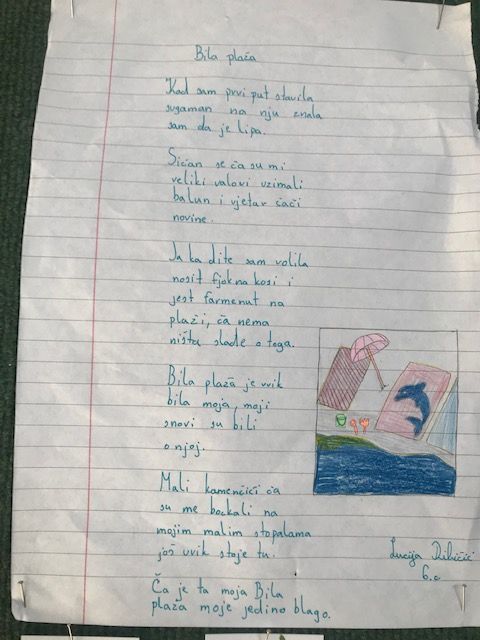 Bila plaža
Kad sam prvi put stavila
sugaman na nju znala
sam da je lipa.
Sićan se ča su mi
veliki valovi uzimali
balun i vjetar ćaći
novine.
Ja ka dite sam volila
nosit fjok na kosi i
jest farmenut na
plaži, ča nema
ništa slađe o toga.
Bila plaža je uvik
bila moja, moji
snovi su bili
o njoj.
Mali kamenčići ča
su me bockali na
mojim malim stopalama
još uvik stoje tu.
Ča je ta moja Bila
plaža moje jedino blago.
Lucija
6.c